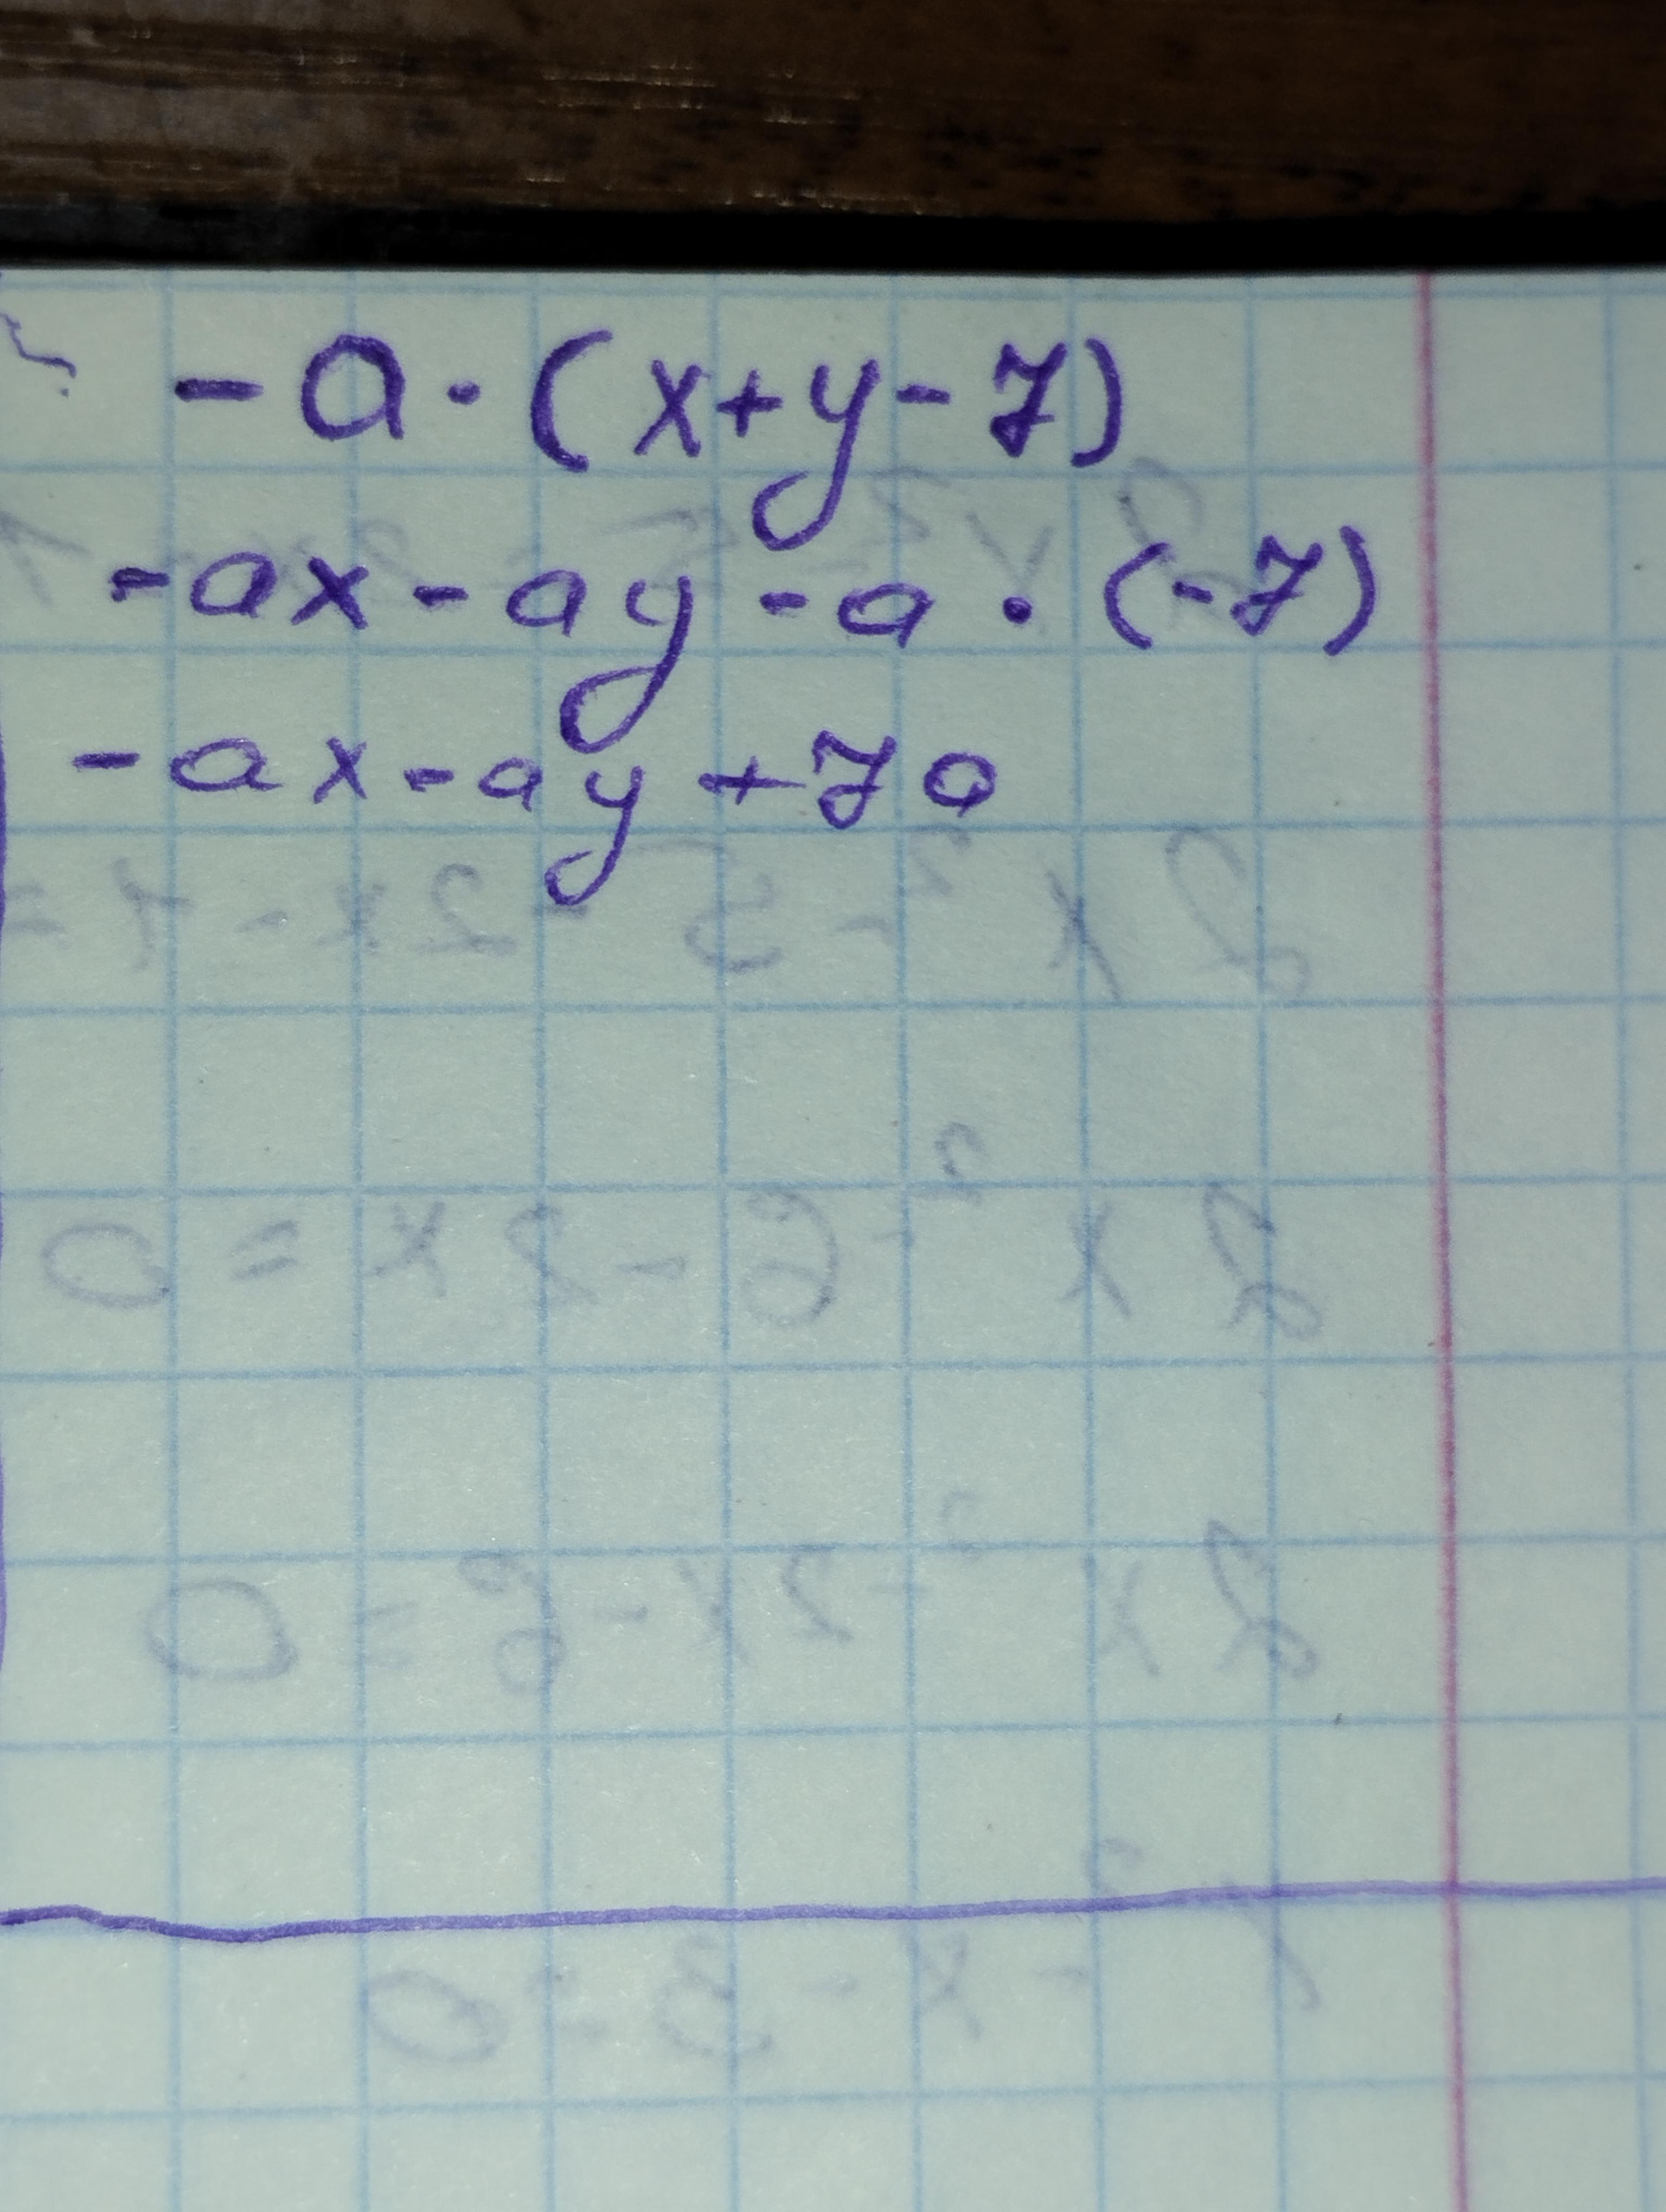 -a·(x+y-7)
-ax-ay-a·(-7)
-ax-ay+7a